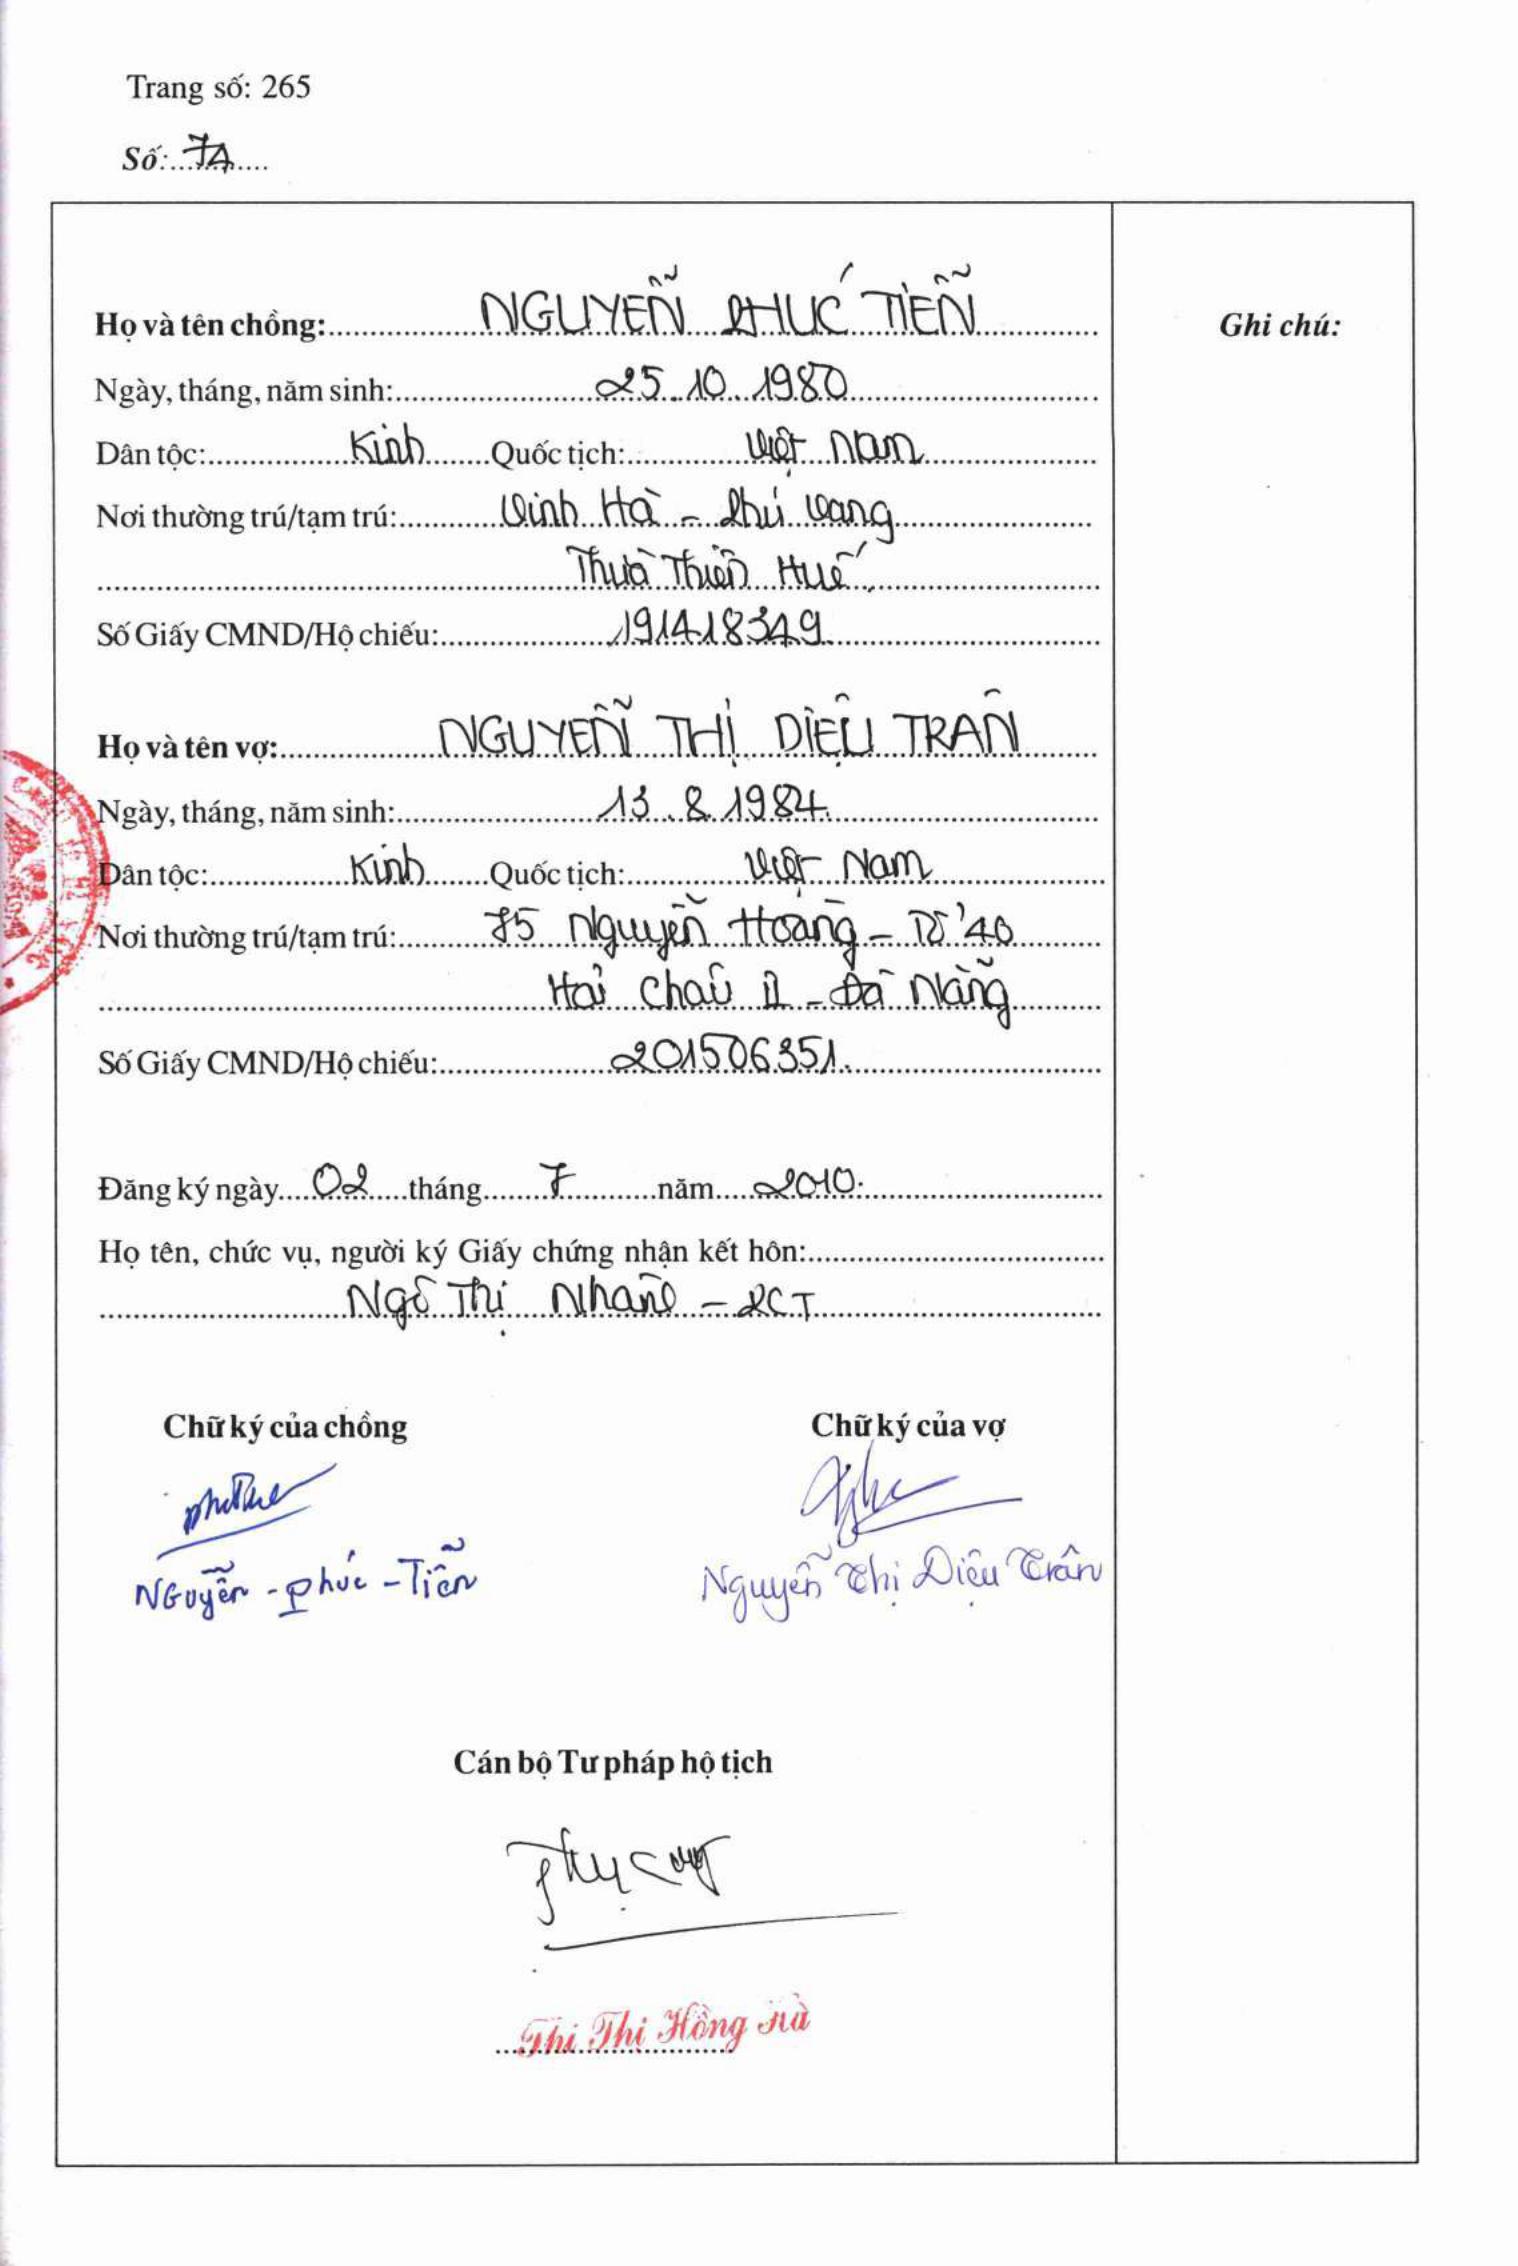 Trang số: 265
Số: 74
Họ và tên chồng: NGUYỄN PHÚC TIỄN
Ghi chú:
Ngày, tháng, năm sinh: 25.10.1980
Dân tộc: Kinh Quốc tịch: Việt Nam
Nơi thường trú/tạm trú: Vinh Hà - Phú Vang
Thừa Thiên Huế
Số Giấy CMND/Hộ chiếu: 191418349
Họ và tên vợ: NGUYỄN THỊ DIỆU TRÂN
Ngày, tháng, năm sinh: 13.8.1984
Dân tộc: Kinh Quốc tịch: Việt Nam
Nơi thường trú/tạm trú: 75 Nguyễn Hoàng - Tổ 40
Hải Châu II - Đà Nẵng
Số Giấy CMND/Hộ chiếu: 201506351.
Đăng ký ngày 02 tháng 7 năm 2010.
Họ tên, chức vụ, người ký Giấy chứng nhận kết hôn:
Ngô Thị Nhàn - PCT
Chữ ký của chồng Chữ ký của vợ
Nguyễn - Phúc - Tiễn Nguyễn Thị Diệu Trân
Cán bộ Tư pháp hộ tịch
Thi Thị Hồng Hà